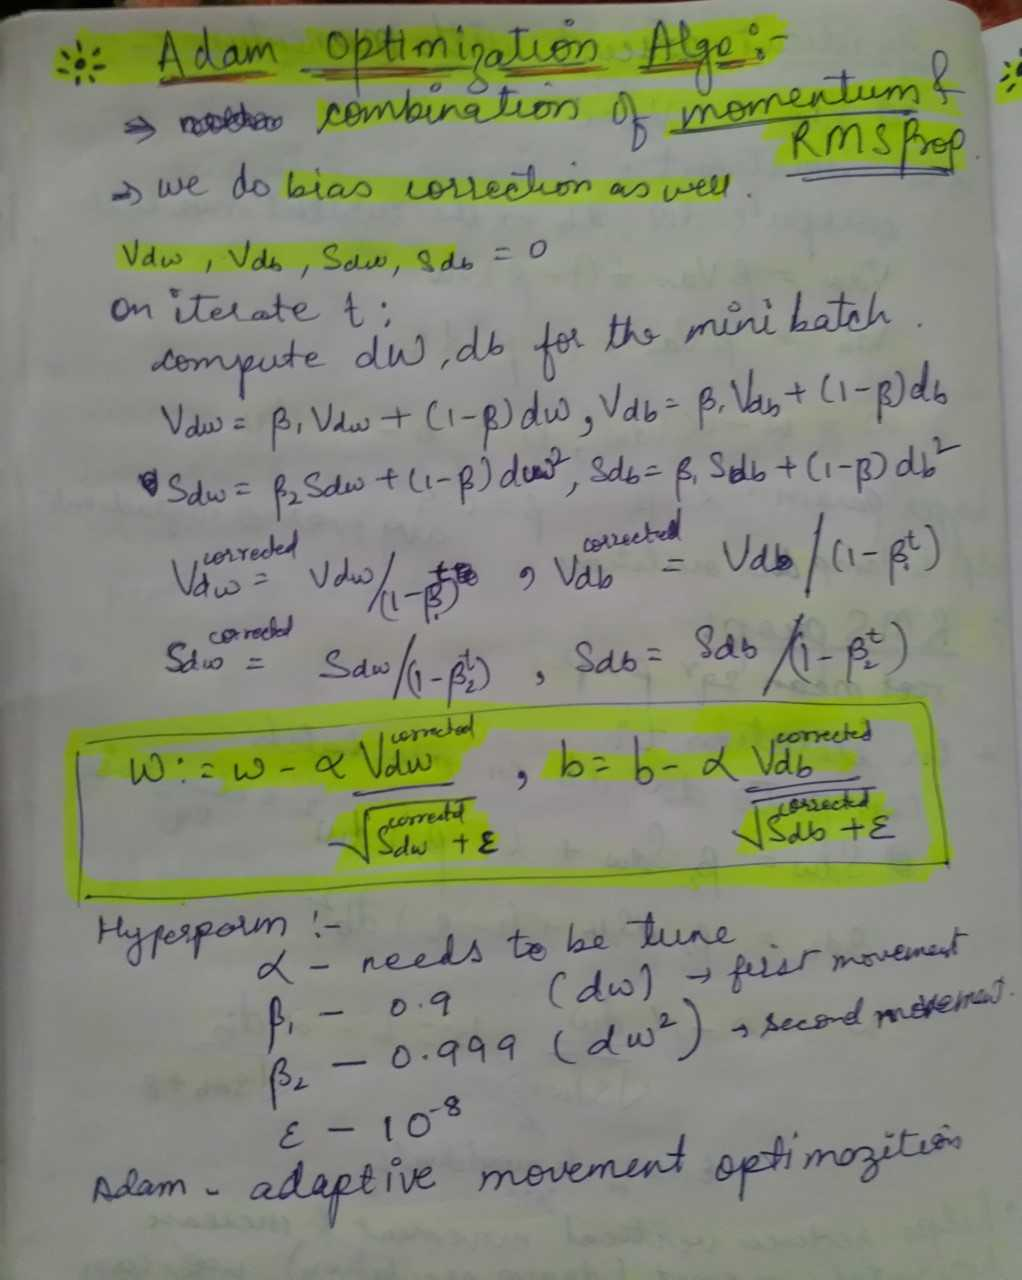 Adam Optimization Algo :-
⇒ combination of momentum &
RMSProp.
⇒ we do bias correction as well.
Vdw , Vdb , Sdw, Sdb = 0
On iterate t :
compute dw, db for the mini batch.
Vdw = β₁ Vdw + (1-β) dw , Vdb = β₁ Vdb + (1-β) db
Sdw = β₂ Sdw + (1-β) dw², Sdb = β₁ Sdb + (1-β) db²
Vdw^corrected = Vdw/(1-β₁)^t , Vdb^corrected = Vdb/(1-β₁^t)
Sdw^corrected = Sdw/(1-β₂^t) , Sdb = Sdb/(1-β₂^t)
w := w - α Vdw^corrected / √(Sdw^corrected + ε) , b = b - α Vdb^corrected / √(Sdb^corrected + ε)
Hyperparm :-
α - needs to be tune
β₁ - 0.9 (dw) → first movement
β₂ - 0.999 (dw²) → second movement.
ε - 10⁻⁸
Adam - adaptive movement optimozition